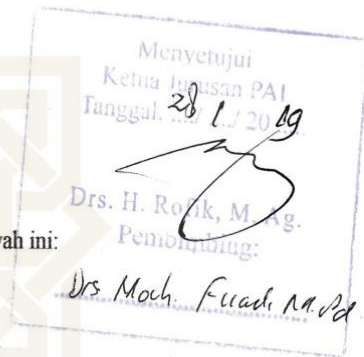 Menyetujui
Ketua Jurusan PAI
Tanggal. 28/1/2019
Drs. H. Rofik, M. Ag.
Pembimbing:
wah ini:
Drs Moch. Fuad M.Pd